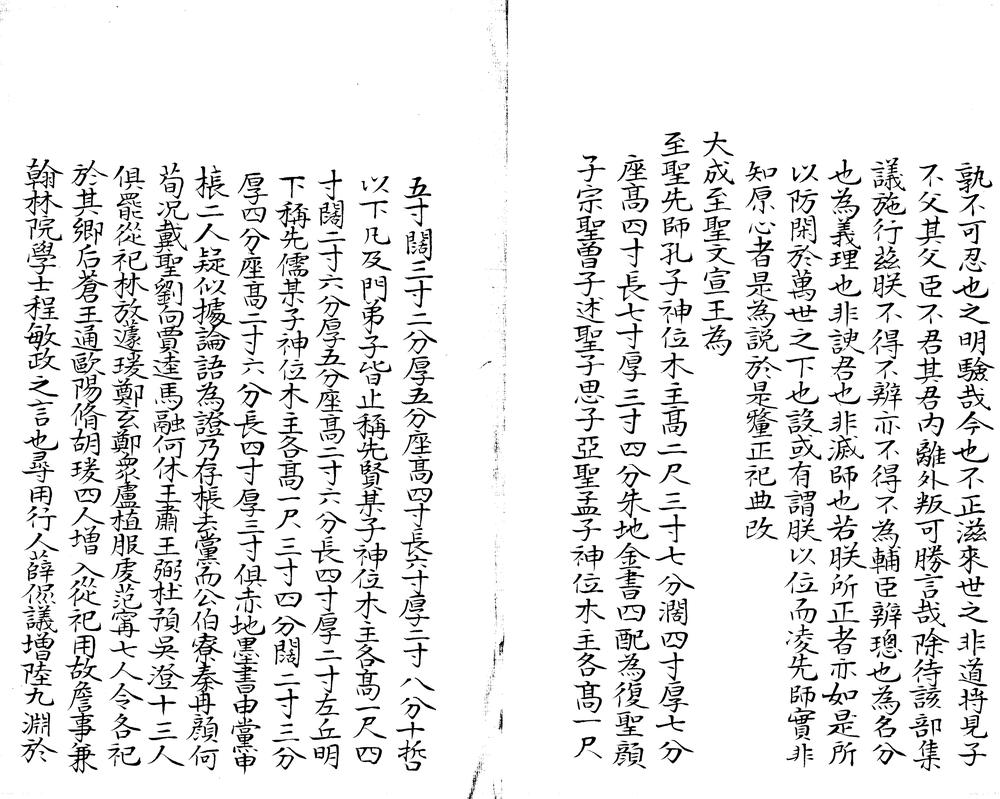 孰不可忍也之明驗哉今也不正滋來世之非道將見子
不父其父臣不君其君內離外叛可勝言哉除待該部集
議施行茲朕不得不辨亦不得不為輔臣辨璁也為名分
也為義理也非諛君也非滅師也若朕所正者亦如是所
以防閑於萬世之下也設或有謂朕以位而凌先師實非
知原心者是為説於是釐正祀典改
大成至聖文宣王為
至聖先師孔子神位木主高二尺三寸七分濶四寸厚七分
座高四寸長七寸厚三寸四分朱地金書四配為復聖顔
子宗聖曽子述聖子思子亞聖孟子神位木主各高一尺
五寸闊三寸二分厚五分座高四寸長六寸厚二寸八分十哲
以下凡及門弟子皆止稱先賢某子神位木主各高一尺四
寸闊二寸六分厚五分座高二寸六分長四寸厚二寸左丘明
下稱先儒某子神位木主各高一尺三寸四分闊二寸三分
厚四分座高二寸六分長四寸厚三寸俱赤地墨書申黨申
棖二人疑似據論語為證乃存棖去黨而公伯寮秦冉顔何
荀况戴聖劉向賈逵馬融何休王肅王弼杜預吳澄十三人
俱罷從祀林放蘧瑗鄭玄鄭衆盧植服虔范甯七人令各祀
於其鄉后蒼王通歐陽脩胡瑗四人增入從祀用故詹事兼
翰林院學士程敏政之言也尋用行人薛侃議增陸九淵於